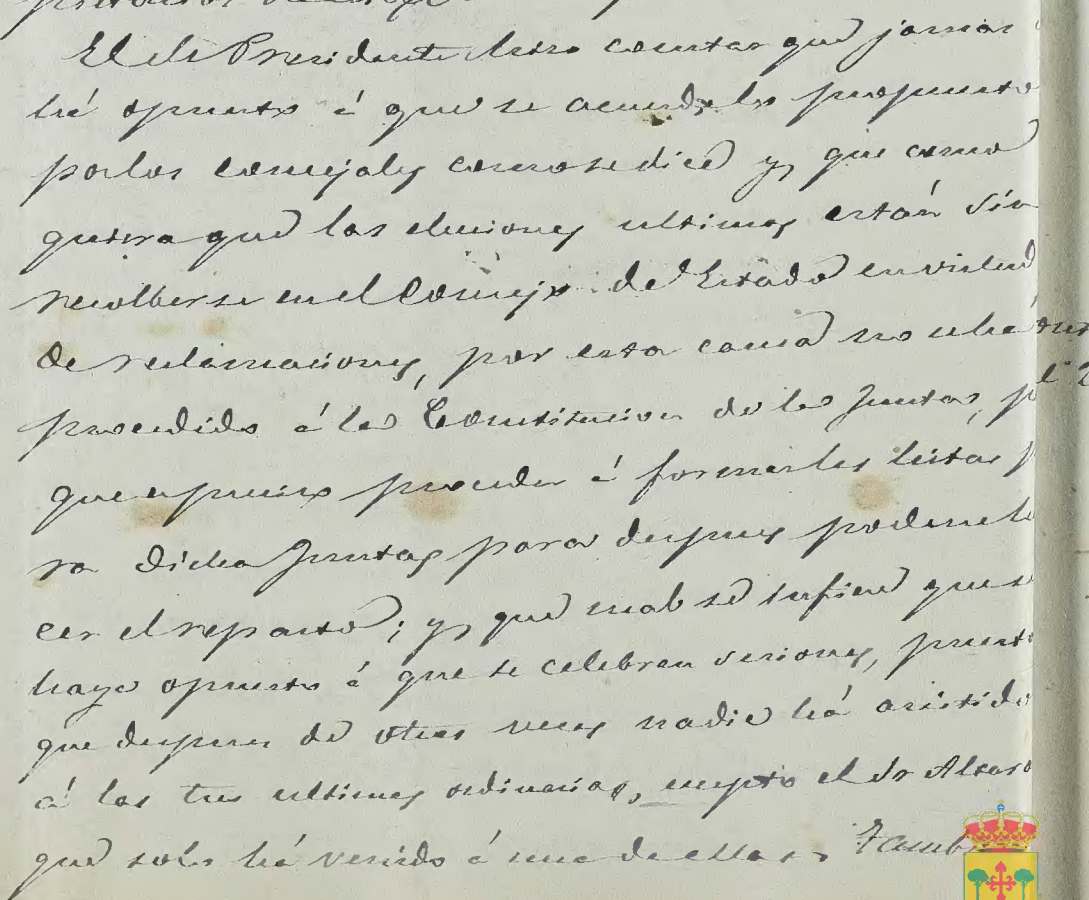 El Sr Presidente hizo constar que jamas
há opuesto á que se acuerde lo propuesto
por los concejales como se dice y, que como
quiera que las elecciones ultimas están sin
resolberse en el Consejo de Estado en virtud
de reclamaciones, por esta causa no se ha
procedido á la Constitucion de las Juntas,
que es preciso proceder á formar las listas p
ra dicha Juntas para despues poderse
cer el reparto; y, que mal se infiere que se
haya opuesto á que se celebren sesiones, puesto
que despues de otras veces nadie há asistido
á las tres ultimas ordinarias, excepto el Sr Alfaro
que solo há venido á una de ellas. Tamb